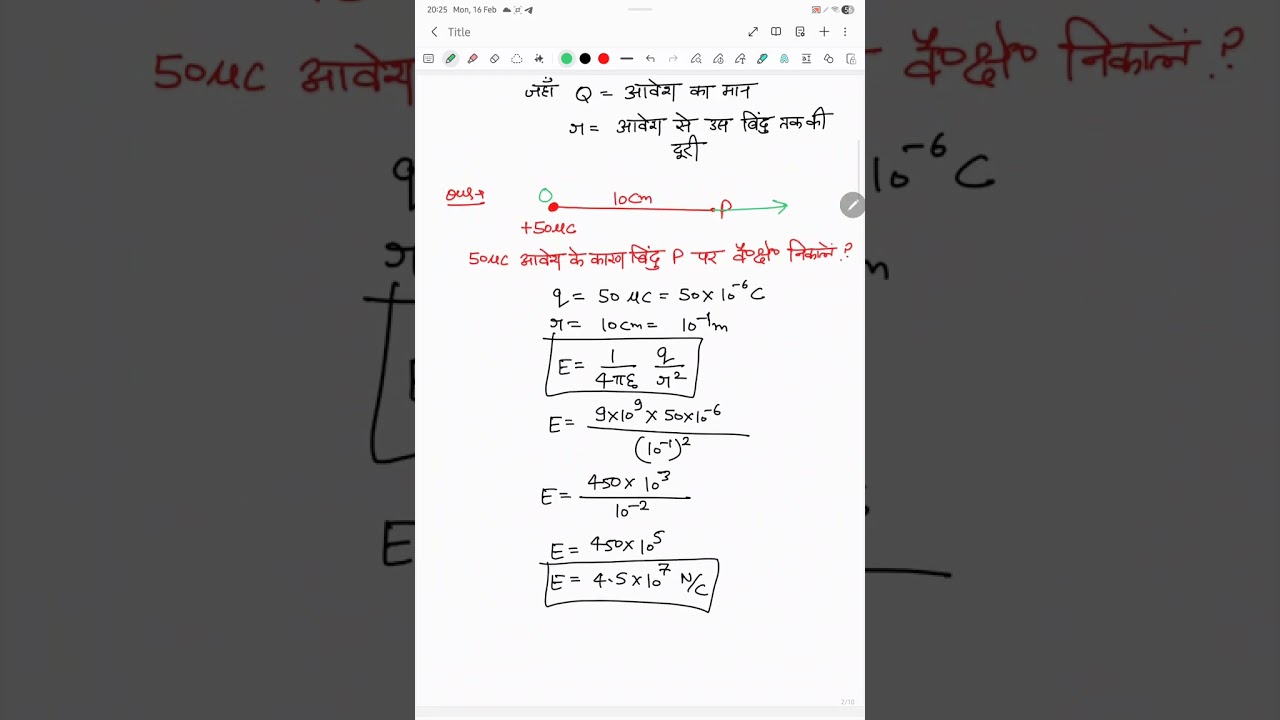 20:25 Mon, 16 Feb
Title
जहाँ Q = आवेश का मान
r = आवेश से उस बिंदु तक की
दूरी
Ques→
O 10cm P
+50μC
50μC आवेश के कारण बिंदु P पर वै०क्षे० निकालें?
q = 50 μC = 50×10⁻⁶ C
r = 10cm = 10⁻¹m
E = 1/4πε₀ q/r²
E = 9×10⁹ × 50×10⁻⁶ / (10⁻¹)²
E = 450×10³ / 10⁻²
E = 450×10⁵
E = 4.5×10⁷ N/C
2/10
50μC आवेश
वै०क्षे० निकालें?
10⁻⁶ C